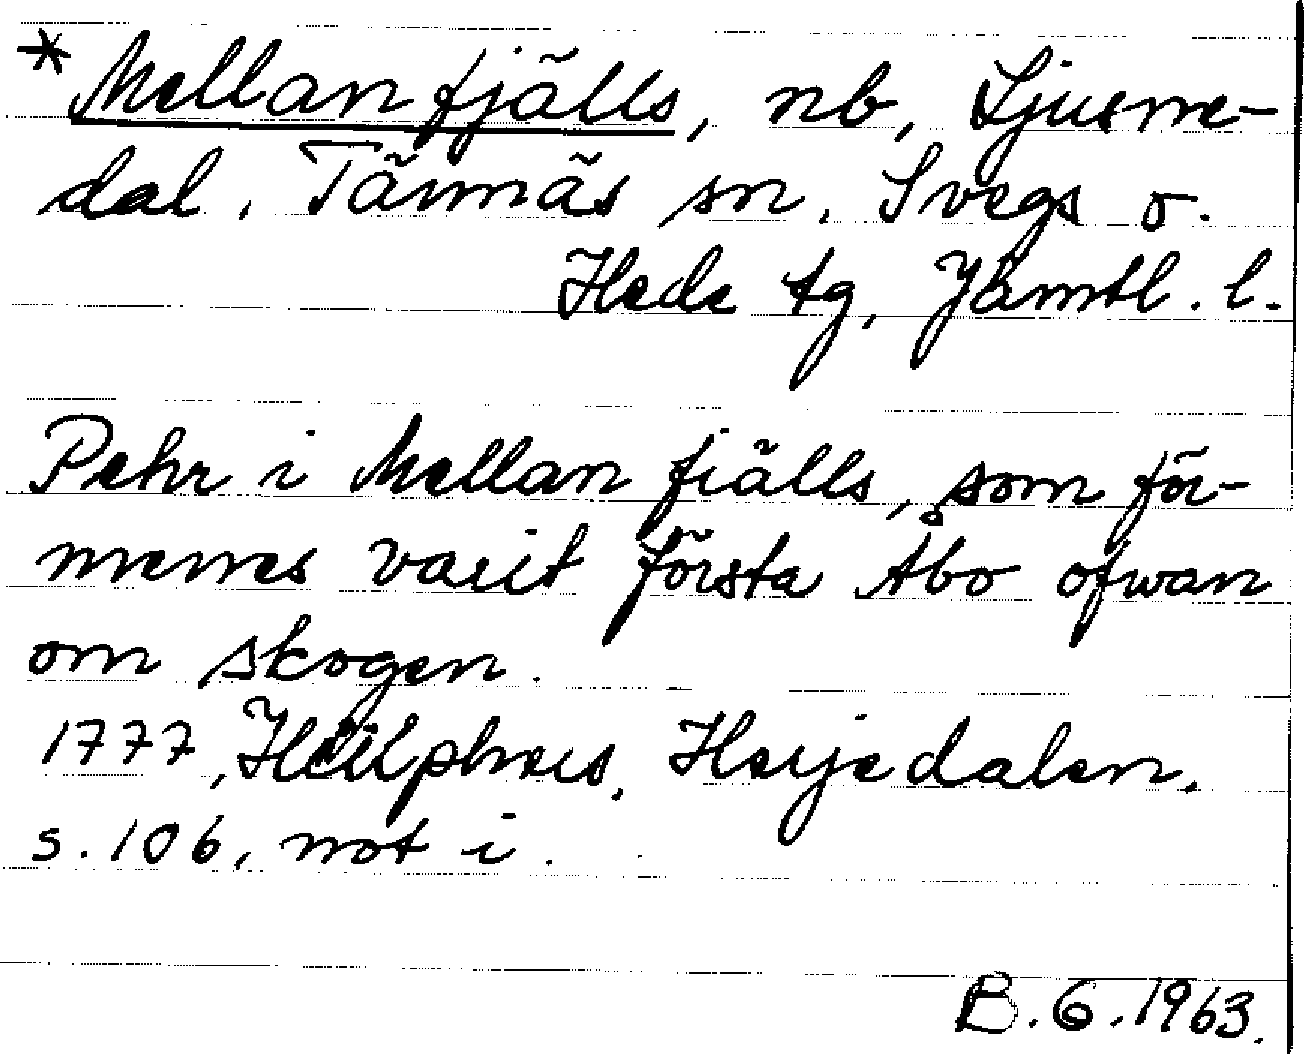 * Mellanfjälls, nb, Ljusne-
dal, Tännäs sn, Svegs o.
Hede tg, Jämtl. l.
Pehr i Mellan fiälls, som för-
menes varit första Åbo ofwan
om skogen.
1777, Hülphers, Herjedalen,
s. 106, not i.
B.G.1963.